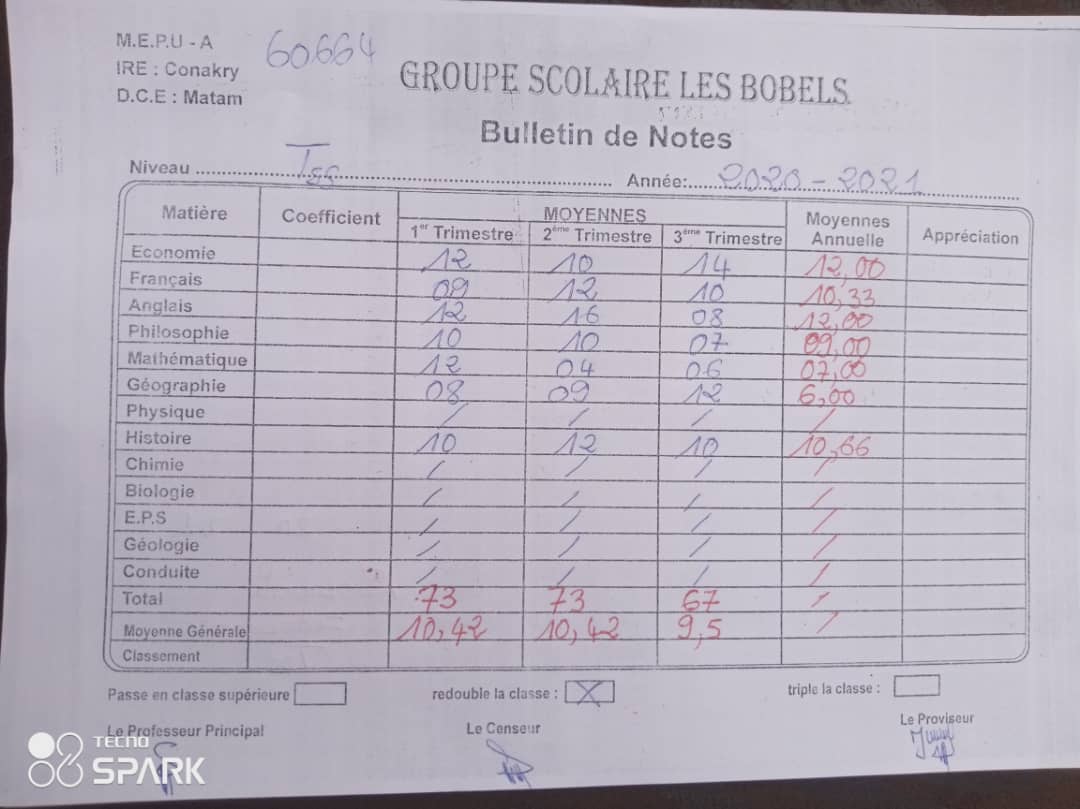 M.E.P.U - A
60664
IRE : Conakry
D.C.E : Matam
GROUPE SCOLAIRE LES BOBELS
Bulletin de Notes
Niveau ........ Année:..... 2020 - 2021
Matière Coefficient MOYENNES Moyennes Annuelle Appréciation
1er Trimestre 2ème Trimestre 3ème Trimestre
Economie 12 10 14 12,00
Français 09 12 10 10,33
Anglais 12 16 08 12,00
Philosophie 10 10 07 09,00
Mathématique 12 04 06 07,00
Géographie 08 09 12 6,00
Physique / / / /
Histoire 10 12 10 10,66
Chimie / / / /
Biologie / / / /
E.P.S / / / /
Géologie / / / /
Conduite / / / /
Total 73 73 67 /
Moyenne Générale 10,42 10,42 9,5 /
Classement
Passe en classe supérieure redouble la classe : X triple la classe :
Le Professeur Principal Le Censeur Le Proviseur
TECNO
SPARK